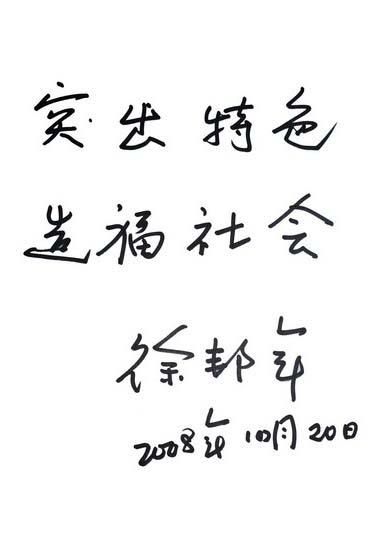 突出特色
造福社会
徐邦年
2008年10月20日